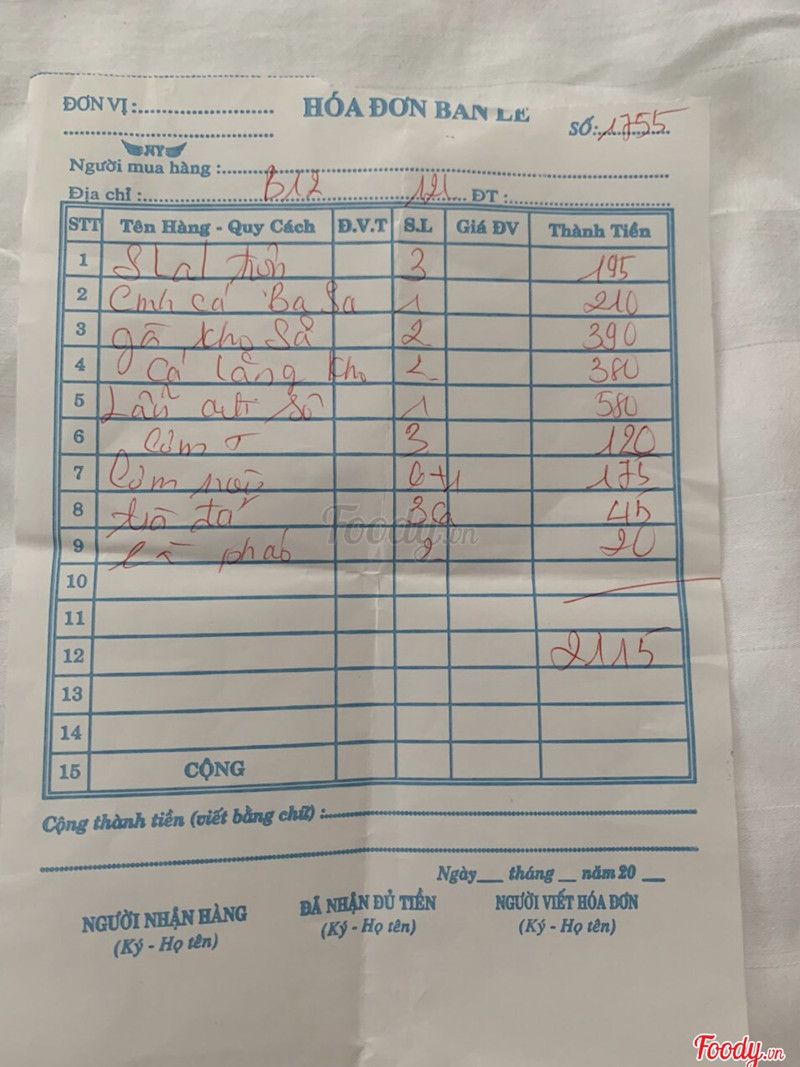 ĐƠN VỊ:
HÓA ĐƠN BAN LẺ
SỐ: 1755
NY
Người mua hàng :
Địa chỉ : B12 121 ĐT :
STT Tên Hàng - Quy Cách Đ.V.T S.L Giá ĐV Thành Tiền
1 Slal trộn 3 195
2 Cnh cá Ba Sa 1 210
3 gà kho Sả 2 390
4 Cá lăng kho 2 380
5 Lẩu 1 580
6 Cơm 3 120
7 Cơm 6+1 175
8 trà đá 3 45
9 phao 2 20
10
11
12 2115
13
14
15 CỘNG
Cộng thành tiền (viết bằng chữ) :
Ngày tháng năm 20
NGƯỜI NHẬN HÀNG ĐÃ NHẬN ĐỦ TIỀN NGƯỜI VIẾT HÓA ĐƠN
(Ký - Họ tên) (Ký - Họ tên) (Ký - Họ tên)
Foody.vn
Foody.vn